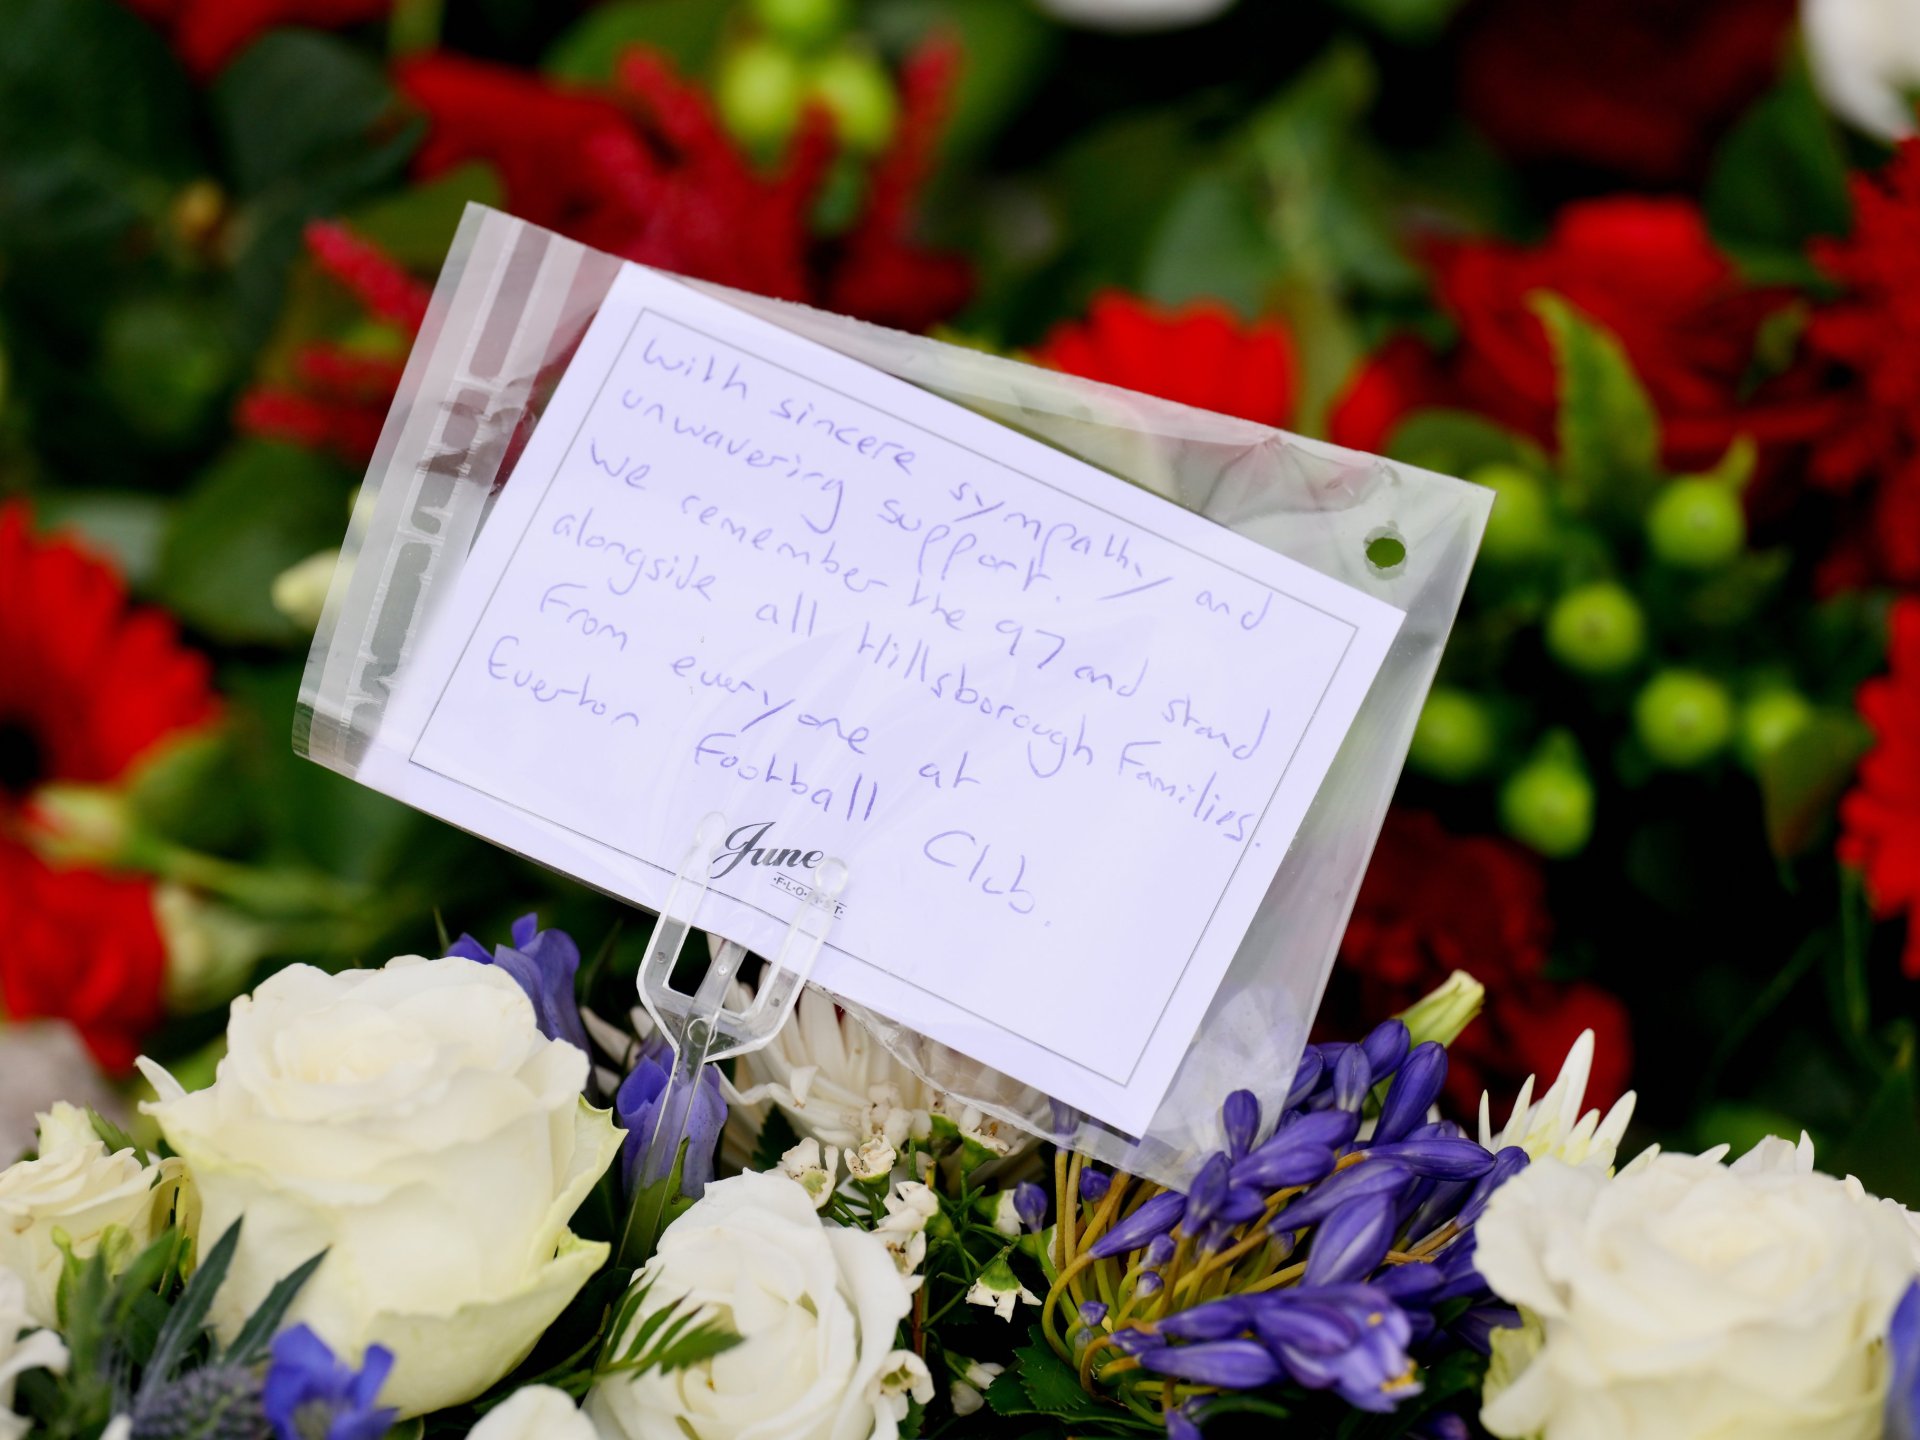 With sincere sympathy and
unwavering support.
We remember the 97 and stand
alongside all Hillsborough Families.
From everyone at
Everton Football Club.
June
·F·L·O·